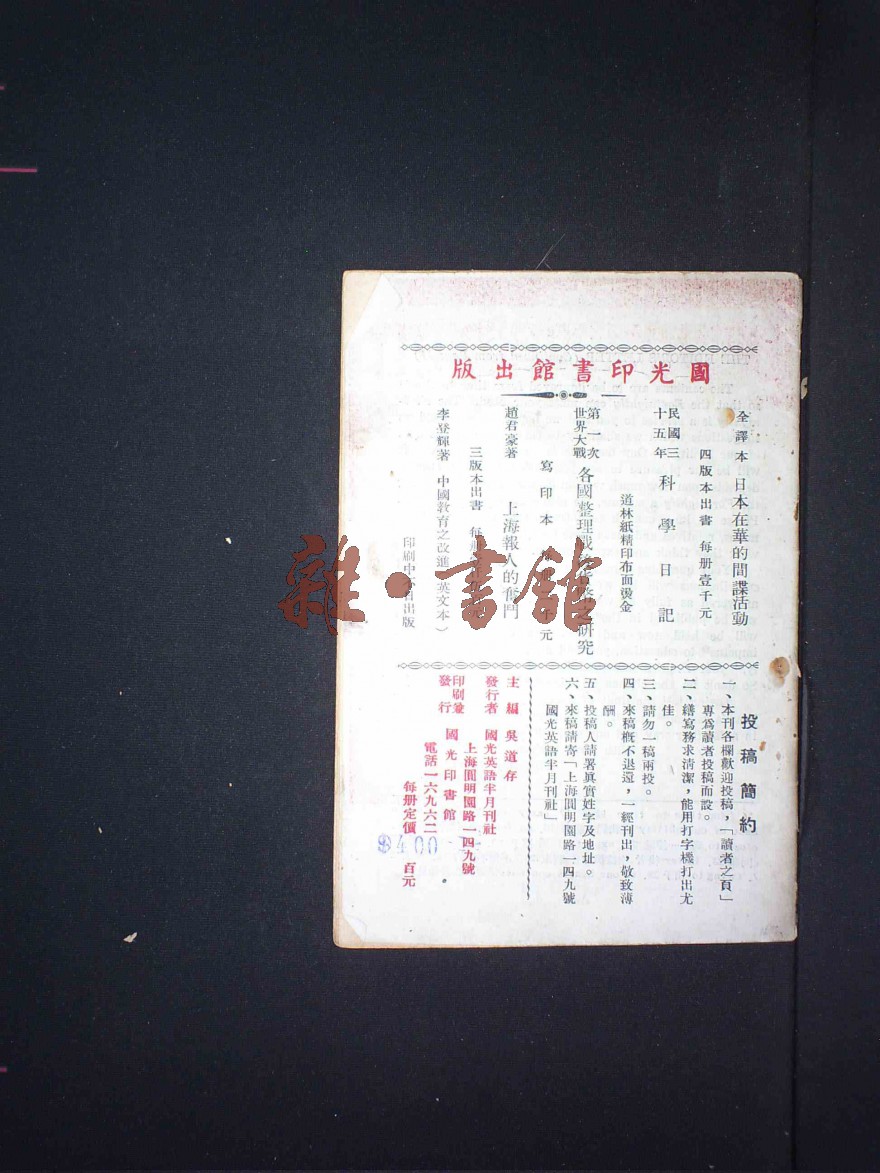 國光印書館出版
全譯本 日本在華的間諜活動
四版本出書 每册壹千元
民國三十五年 科學日記
道林紙精印布面燙金
第一次世界大戰 各國整理戰 研究
寫印本 千元
趙君豪著 上海報人的奮鬥
三版本出書 每册
李登輝著 中國教育之改進(英文本)
印刷中 日出版
投稿簡約
一、本刊各欄歡迎投稿,「讀者之頁」
專爲讀者投稿而設。
二、繕寫務求清潔,能用打字機打出尤
佳。
三、請勿一稿兩投。
四、來稿概不退還,一經刊出,敬致薄
酬。
五、投稿人請署眞實姓字及地址。
六、來稿請寄「上海圓明園路一四九號
國光英語半月刊社」
主編 吳道存
發行者 國光英語半月刊社
上海圓明園路一四九號
印刷兼發行 國光印書館
電話一六九六二
每册定價 $400 百元
雜·書館